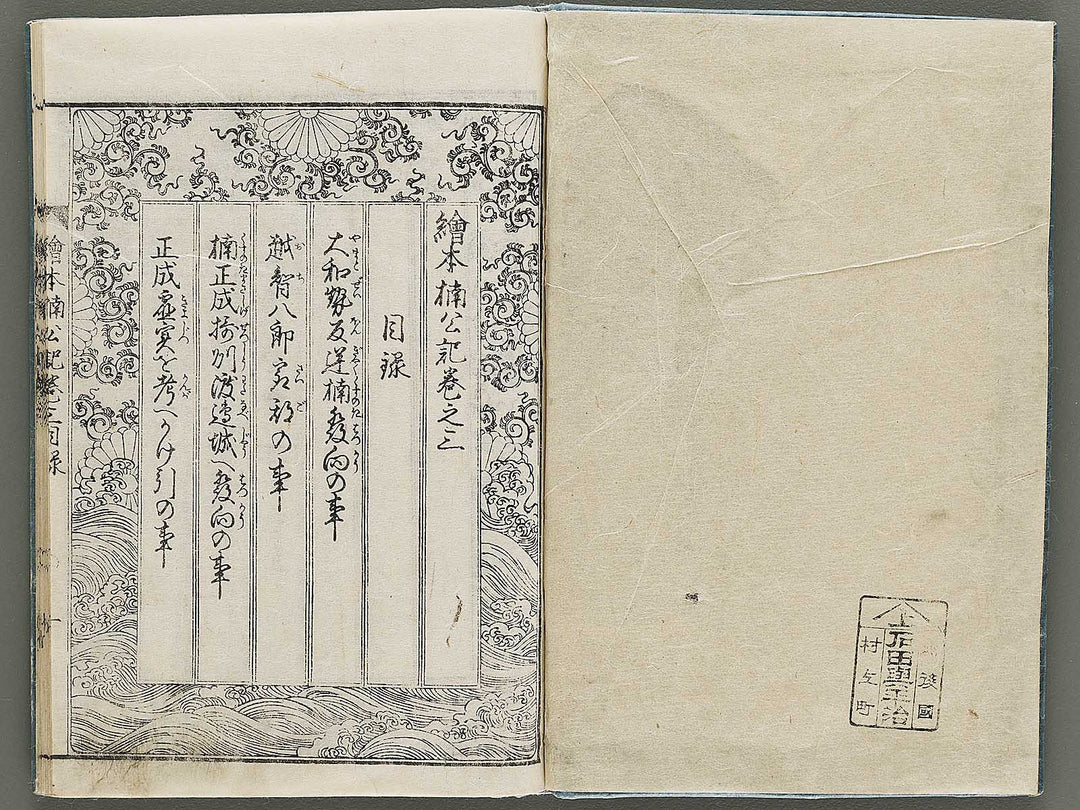 繪本楠公記巻之三
目録
大和勢反逆楠發向の事
越智八郎宿禰の事
楠正成摂州渡邉城へ發向の事
正成虚実を考へかけ引の事
繪本楠公記巻三目録
國
石田與平治
村上町